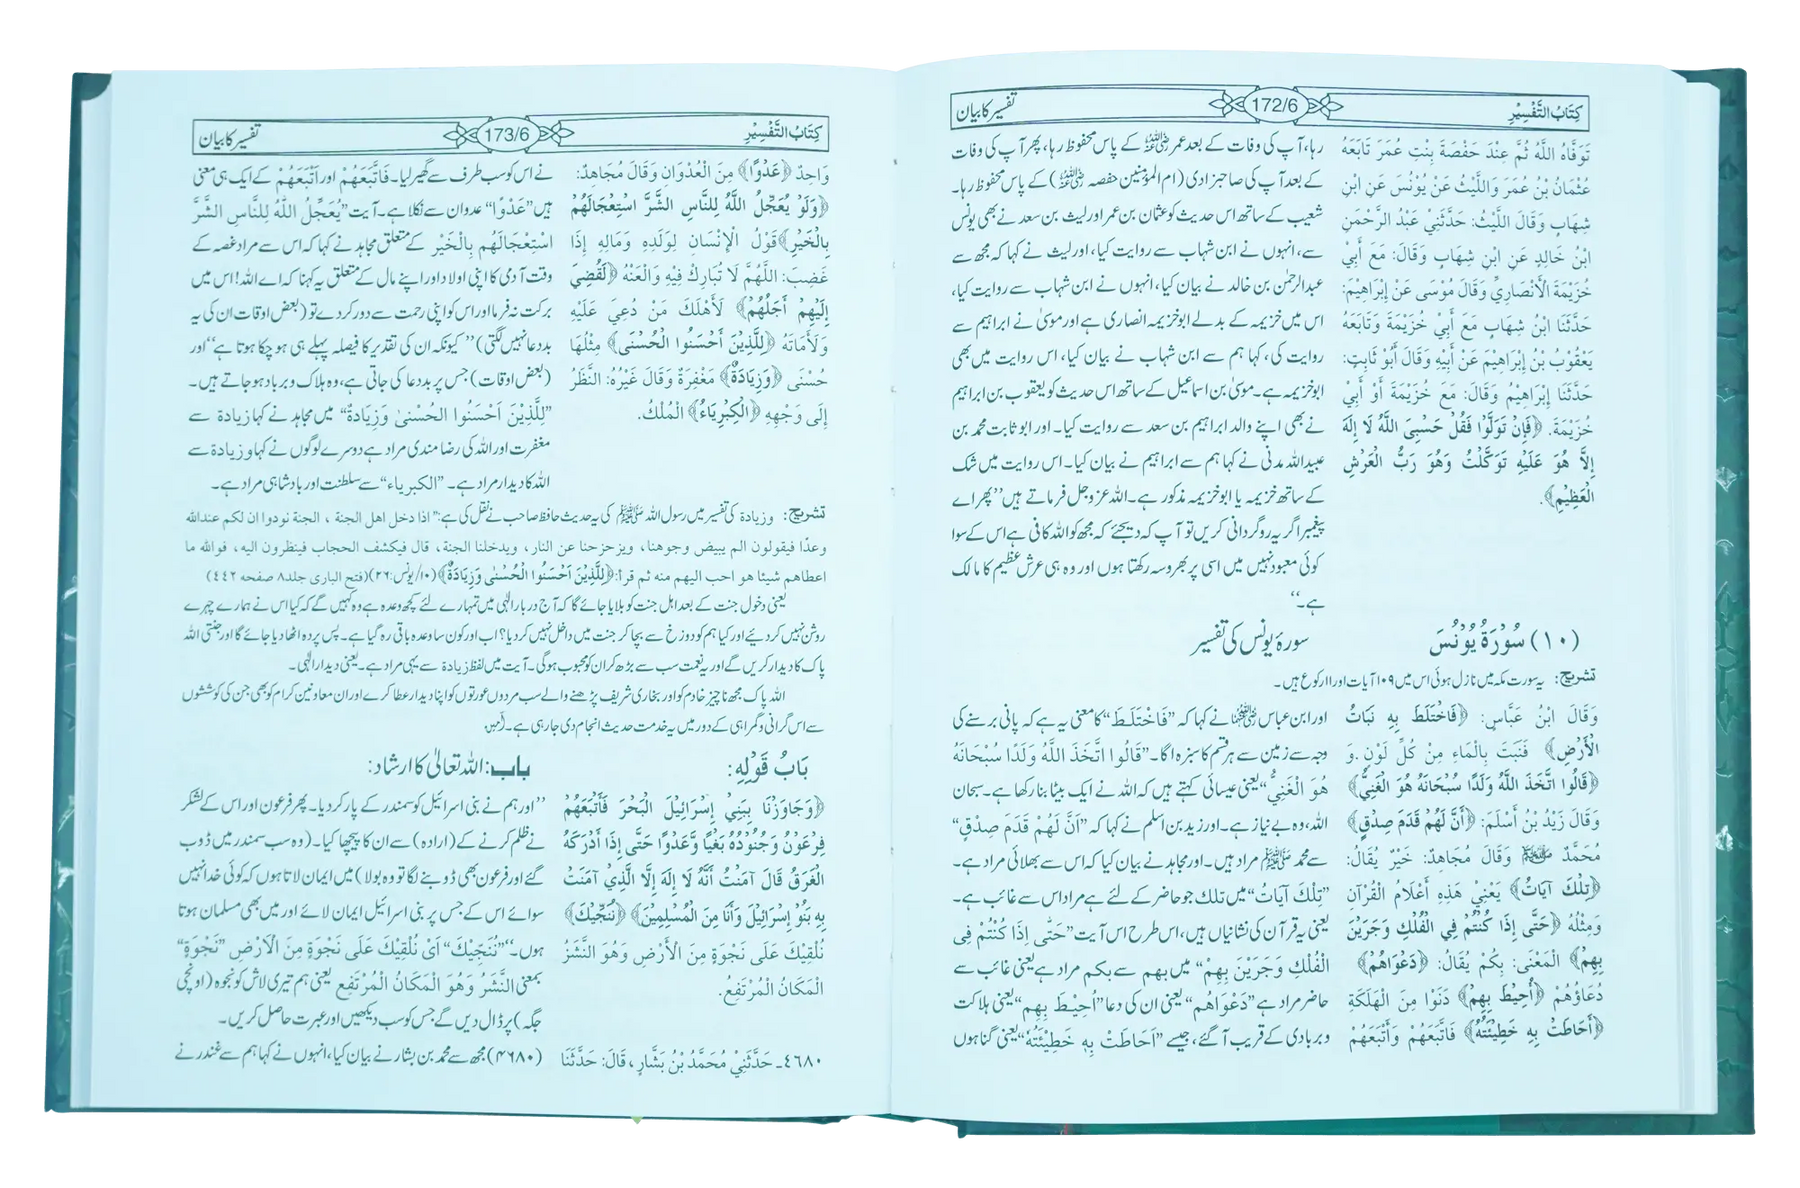 كِتَابُ التَّفْسِيْرِ 172/6 تفسیر کا بیان
تَوَفَّاهُ اللَّهُ ثُمَّ عِنْدَ حَفْصَةَ بِنْتِ عُمَرَ تَابَعَهُ
عُثْمَانُ بْنُ عُمَرَ وَاللَّيْثُ عَنْ يُوْنُسَ عَنِ ابْنِ
شِهَابٍ وَقَالَ اللَّيْثُ: حَدَّثَنِي عَبْدُ الرَّحْمَنِ
ابْنُ خَالِدٍ عَنِ ابْنِ شِهَابٍ وَقَالَ: مَعَ أَبِي
خُزَيْمَةَ الْأَنْصَارِيِّ وَقَالَ مُوْسَى عَنْ إِبْرَاهِيْمَ:
حَدَّثَنَا ابْنُ شِهَابٍ مَعَ أَبِي خُزَيْمَةَ وَتَابَعَهُ
يَعْقُوْبُ بْنُ إِبْرَاهِيْمَ عَنْ أَبِيْهِ وَقَالَ أَبُوْ ثَابِتٍ:
حَدَّثَنَا إِبْرَاهِيْمُ وَقَالَ: مَعَ خُزَيْمَةَ أَوْ أَبِي
خُزَيْمَةَ. ﴿فَإِنْ تَوَلَّوْا فَقُلْ حَسْبِيَ اللَّهُ لَا إِلَهَ
إِلَّا هُوَ عَلَيْهِ تَوَكَّلْتُ وَهُوَ رَبُّ الْعَرْشِ
الْعَظِيْمِ﴾.
رہا، آپ کی وفات کے بعد عمر رضی اللہ عنہ کے پاس محفوظ رہا، پھر آپ کی وفات
کے بعد آپ کی صاحبزادی (ام المؤمنین حفصہ رضی اللہ عنہا) کے پاس محفوظ رہا۔
شعیب کے ساتھ اس حدیث کو عثمان بن عمر اور لیث بن سعد نے بھی یونس
سے، انہوں نے ابن شہاب سے روایت کیا، اور لیث نے کہا کہ مجھ سے
عبدالرحمٰن بن خالد نے بیان کیا، انہوں نے ابن شہاب سے روایت کیا،
اس میں خزیمہ کے بدلے ابوخزیمہ انصاری ہے اور موسیٰ نے ابراہیم سے
روایت کی، کہا ہم سے ابن شہاب نے بیان کیا، اس روایت میں بھی
ابوخزیمہ ہے۔ موسیٰ بن اسماعیل کے ساتھ اس حدیث کو یعقوب بن ابراہیم
نے بھی اپنے والد ابراہیم بن سعد سے روایت کیا۔ اور ابو ثابت محمد بن
عبیداللہ مدنی نے کہا ہم سے ابراہیم نے بیان کیا۔ اس روایت میں شک
کے ساتھ خزیمہ یا ابوخزیمہ مذکور ہے۔ اللہ عزوجل فرماتے ہیں ’’پھر اے
پیغمبر! اگر یہ روگردانی کریں تو آپ کہہ دیجئے کہ مجھ کو اللہ کافی ہے اس کے سوا
کوئی معبود نہیں میں اسی پر بھروسہ رکھتا ہوں اور وہ ہی عرش عظیم کا مالک
ہے۔‘‘
(١٠) سُوْرَةُ يُوْنُسَ سورۂ یونس کی تفسیر
تشریح: یہ سورت مکہ میں نازل ہوئی اس میں ۱۰۹ آیات اور ۱۱ رکوع ہیں۔
وَقَالَ ابْنُ عَبَّاسٍ: ﴿فَاخْتَلَطَ بِهِ نَبَاتُ
الْأَرْضِ﴾ فَنَبَتَ بِالْمَاءِ مِنْ كُلِّ لَوْنٍ. وَ
﴿قَالُوا اتَّخَذَ اللَّهُ وَلَدًا سُبْحَانَهُ هُوَ الْغَنِيُّ﴾
وَقَالَ زَيْدُ بْنُ أَسْلَمَ: ﴿أَنَّ لَهُمْ قَدَمَ صِدْقٍ﴾
مُحَمَّدٌ ﷺ وَقَالَ مُجَاهِدٌ: خَيْرٌ يُقَالُ:
﴿تِلْكَ آيَاتُ﴾ يَعْنِيْ هَذِهِ أَعْلَامُ الْقُرْآنِ
وَمِثْلُهُ ﴿حَتَّى إِذَا كُنْتُمْ فِي الْفُلْكِ وَجَرَيْنَ
بِهِمْ﴾ الْمَعْنَى: بِكُمْ يُقَالُ: ﴿دَعْوَاهُمْ﴾
دُعَاؤُهُمْ ﴿أُحِيْطَ بِهِمْ﴾ دَنَوْا مِنَ الْهَلَكَةِ
﴿أَحَاطَتْ بِهِ خَطِيْئَتُهُ﴾ فَاتَّبَعَهُمْ وَأَتْبَعَهُمْ
اور ابن عباس رضی اللہ عنہما نے کہا کہ ’’فَاخْتَلَطَ‘‘ کا معنی یہ ہے کہ پانی برسنے کی
وجہ سے زمین سے ہر قسم کا سبزہ اگا۔ ’’قَالُوا اتَّخَذَ اللَّهُ وَلَدًا سُبْحَانَهُ
هُوَ الْغَنِيُّ‘‘ یعنی عیسائی کہتے ہیں کہ اللہ نے ایک بیٹا بنا رکھا ہے۔ سبحان
اللہ، وہ بے نیاز ہے۔ اور زید بن اسلم نے کہا کہ ’’اَنَّ لَهُمْ قَدَمَ صِدْقٍ‘‘
سے محمد ﷺ مراد ہیں۔ اور مجاہد نے بیان کیا کہ اس سے بھلائی مراد ہے۔
’’تِلْكَ آيَاتُ‘‘ میں تلک جو حاضر کے لئے ہے مراد اس سے غائب ہے۔
یعنی یہ قرآن کی نشانیاں ہیں، اس طرح اس آیت ’’حَتّٰى اِذَا كُنْتُمْ فِى
الْفُلْكِ وَجَرَيْنَ بِهِمْ‘‘ میں بھم سے بکم مراد ہے یعنی غائب سے
حاضر مراد ہے ’’دَعْوَاهُم‘‘ یعنی ان کی دعا ’’اُحِيْطَ بِهِم‘‘ یعنی ہلاکت
و بربادی کے قریب آ گئے، جیسے ’’اَحَاطَتْ بِهٖ خَطِيْئَتُهٗ‘‘ یعنی گناہوں
كِتَابُ التَّفْسِيْرِ 173/6 تفسیر کا بیان
وَاحِدٌ ﴿عَدْوًا﴾ مِنَ الْعُدْوَانِ وَقَالَ مُجَاهِدٌ:
﴿وَلَوْ يُعَجِّلُ اللَّهُ لِلنَّاسِ الشَّرَّ اسْتِعْجَالَهُمْ
بِالْخَيْرِ﴾ قَوْلُ الْإِنْسَانِ لِوَلَدِهِ وَمَالِهِ إِذَا
غَضِبَ: اللَّهُمَّ لَا تُبَارِكْ فِيْهِ وَالْعَنْهُ ﴿لَقُضِيَ
إِلَيْهِمْ أَجَلُهُمْ﴾ لَأَهْلَكَ مَنْ دُعِيَ عَلَيْهِ
وَلَأَمَاتَهُ ﴿لِلَّذِيْنَ أَحْسَنُوا الْحُسْنَى﴾ مِثْلُهَا
حُسْنَى ﴿وَزِيَادَةٌ﴾ مَغْفِرَةٌ وَقَالَ غَيْرُهُ: النَّظَرُ
إِلَى وَجْهِهِ ﴿الْكِبْرِيَاءُ﴾ الْمُلْكُ.
نے اس کو سب طرف سے گھیر لیا۔ فَاتَّبَعَهُمْ اور اَتْبَعَهُمْ کے ایک ہی معنی
ہیں ’’عَدْوًا‘‘ عدوان سے نکلا ہے۔ آیت ’’يُعَجِّلُ اللّٰهُ لِلنَّاسِ الشَّرَّ
اسْتِعْجَالَهُم بِالْخَيْرِ کے متعلق مجاہد نے کہا کہ اس سے مراد غصہ کے
وقت آدمی کا اپنی اولاد اور اپنے مال کے متعلق یہ کہنا کہ اے اللہ! اس میں
برکت نہ فرما اور اس کو اپنی رحمت سے دور کر دے تو (بعض اوقات ان کی یہ
بددعا نہیں لگتی)‘‘ کیونکہ ان کی تقدیر کا فیصلہ پہلے ہی ہو چکا ہوتا ہے‘‘ اور
(بعض اوقات) جس پر بددعا کی جاتی ہے، وہ ہلاک و برباد ہو جاتے ہیں۔
’’لِلَّذِيْنَ اَحْسَنُوا الحُسْنىٰ وَزِيادَةٌ‘‘ میں مجاہد نے کہا زیادة سے
مغفرت اور اللہ کی رضامندی مراد ہے دوسرے لوگوں نے کہا وزیادة سے
اللہ کا دیدار مراد ہے۔ ’’الكبرياء‘‘ سے سلطنت اور بادشاہی مراد ہے۔
تشریح: وزیادة کی تفسیر میں رسول اللہ ﷺ کی یہ حدیث حافظ صاحب نے نقل کی ہے: ’’اذا دخل اهل الجنة ، الجنة نودوا ان لكم عندالله
وعدًا فيقولون الم يبيض وجوهنا، ويزحزحنا عن النار، ويدخلنا الجنة، قال فيكشف الحجاب فينظرون اليه، فوالله ما
اعطاهم شيئا هو احب اليهم منه ثم قرأ: ﴿لِلَّذِيْنَ اَحْسَنُوا الْحُسْنٰى وَزِيَادَةٌ﴾ (١٠/يونس:٢٦) (فتح الباری جلد ٨ صفحہ ٤٤٢)
یعنی دخول جنت کے بعد اہل جنت کو بلایا جائے گا کہ آج دربار الٰہی میں تمہارے لئے کچھ وعدہ ہے وہ کہیں گے کہ کیا اس نے ہمارے چہرے
روشن نہیں کر دئیے اور کیا ہم کو دوزخ سے بچا کر جنت میں داخل نہیں کر دیا؟ اب اور کون سا وعدہ باقی رہ گیا ہے۔ پس پردہ اٹھا دیا جائے گا اور جنتی اللہ
پاک کا دیدار کریں گے اور یہ نعمت سب سے بڑھ کر ان کو محبوب ہوگی۔ آیت میں لفظ زیادة سے یہی مراد ہے۔ یعنی دیدار الٰہی۔
اللہ پاک مجھ ناچیز خادم کو اور بخاری شریف پڑھنے والے سب مردوں عورتوں کو اپنا دیدار عطا کرے اور ان معاونین کرام کو بھی جن کی کوششوں
سے اس گرانی و گمراہی کے دور میں یہ خدمت حدیث انجام دی جا رہی ہے۔ (آمین)
بَابُ قَوْلِهِ: باب: اللہ تعالیٰ کا ارشاد:
﴿وَجَاوَزْنَا بِبَنِيْ إِسْرَائِيلَ الْبَحْرَ فَأَتْبَعَهُمْ
فِرْعَوْنُ وَجُنُوْدُهُ بَغْيًا وَّعَدْوًا حَتَّى إِذَا أَدْرَكَهُ
الْغَرَقُ قَالَ آمَنْتُ أَنَّهُ لَا إِلَهَ إِلَّا الَّذِيْ آمَنَتْ
بِهِ بَنُوْ إِسْرَائِيلَ وَأَنَا مِنَ الْمُسْلِمِيْنَ﴾ ﴿نُنَجِّيْكَ﴾
نُلْقِيْكَ عَلَى نَجْوَةٍ مِنَ الْأَرْضِ وَهُوَ النَّشَزُ
الْمَكَانُ الْمُرْتَفِعُ.
’’اور ہم نے بنی اسرائیل کو سمندر کے پار کر دیا۔ پھر فرعون اور اس کے لشکر
نے ظلم کرنے کے (ارادہ) سے ان کا پیچھا کیا۔ (وہ سب سمندر میں ڈوب
گئے اور فرعون بھی ڈوبنے لگا تو وہ بولا) میں ایمان لاتا ہوں کہ کوئی خدا نہیں
سوائے اس کے جس پر بنی اسرائیل ایمان لائے اور میں بھی مسلمان ہوتا
ہوں۔‘‘ ’’نُنَجِّيْكَ‘‘ اَىْ نُلْقِيْكَ عَلَى نَجْوَةٍ مِنَ الْاَرْضِ ’’نَجْوَةٍ‘‘
بمعنی النَّشَزُ وَهُوَ الْمَكَانُ الْمُرْتَفِع یعنی ہم تیری لاش کو نجوہ (اونچی
جگہ) پر ڈال دیں گے جس کو سب دیکھیں اور عبرت حاصل کریں۔
٤٦٨٠ـ حَدَّثَنِيْ مُحَمَّدُ بْنُ بَشَّارٍ، قَالَ: حَدَّثَنَا
(۴۶۸۰) مجھ سے محمد بن بشار نے بیان کیا، انہوں نے کہا ہم سے غندر نے